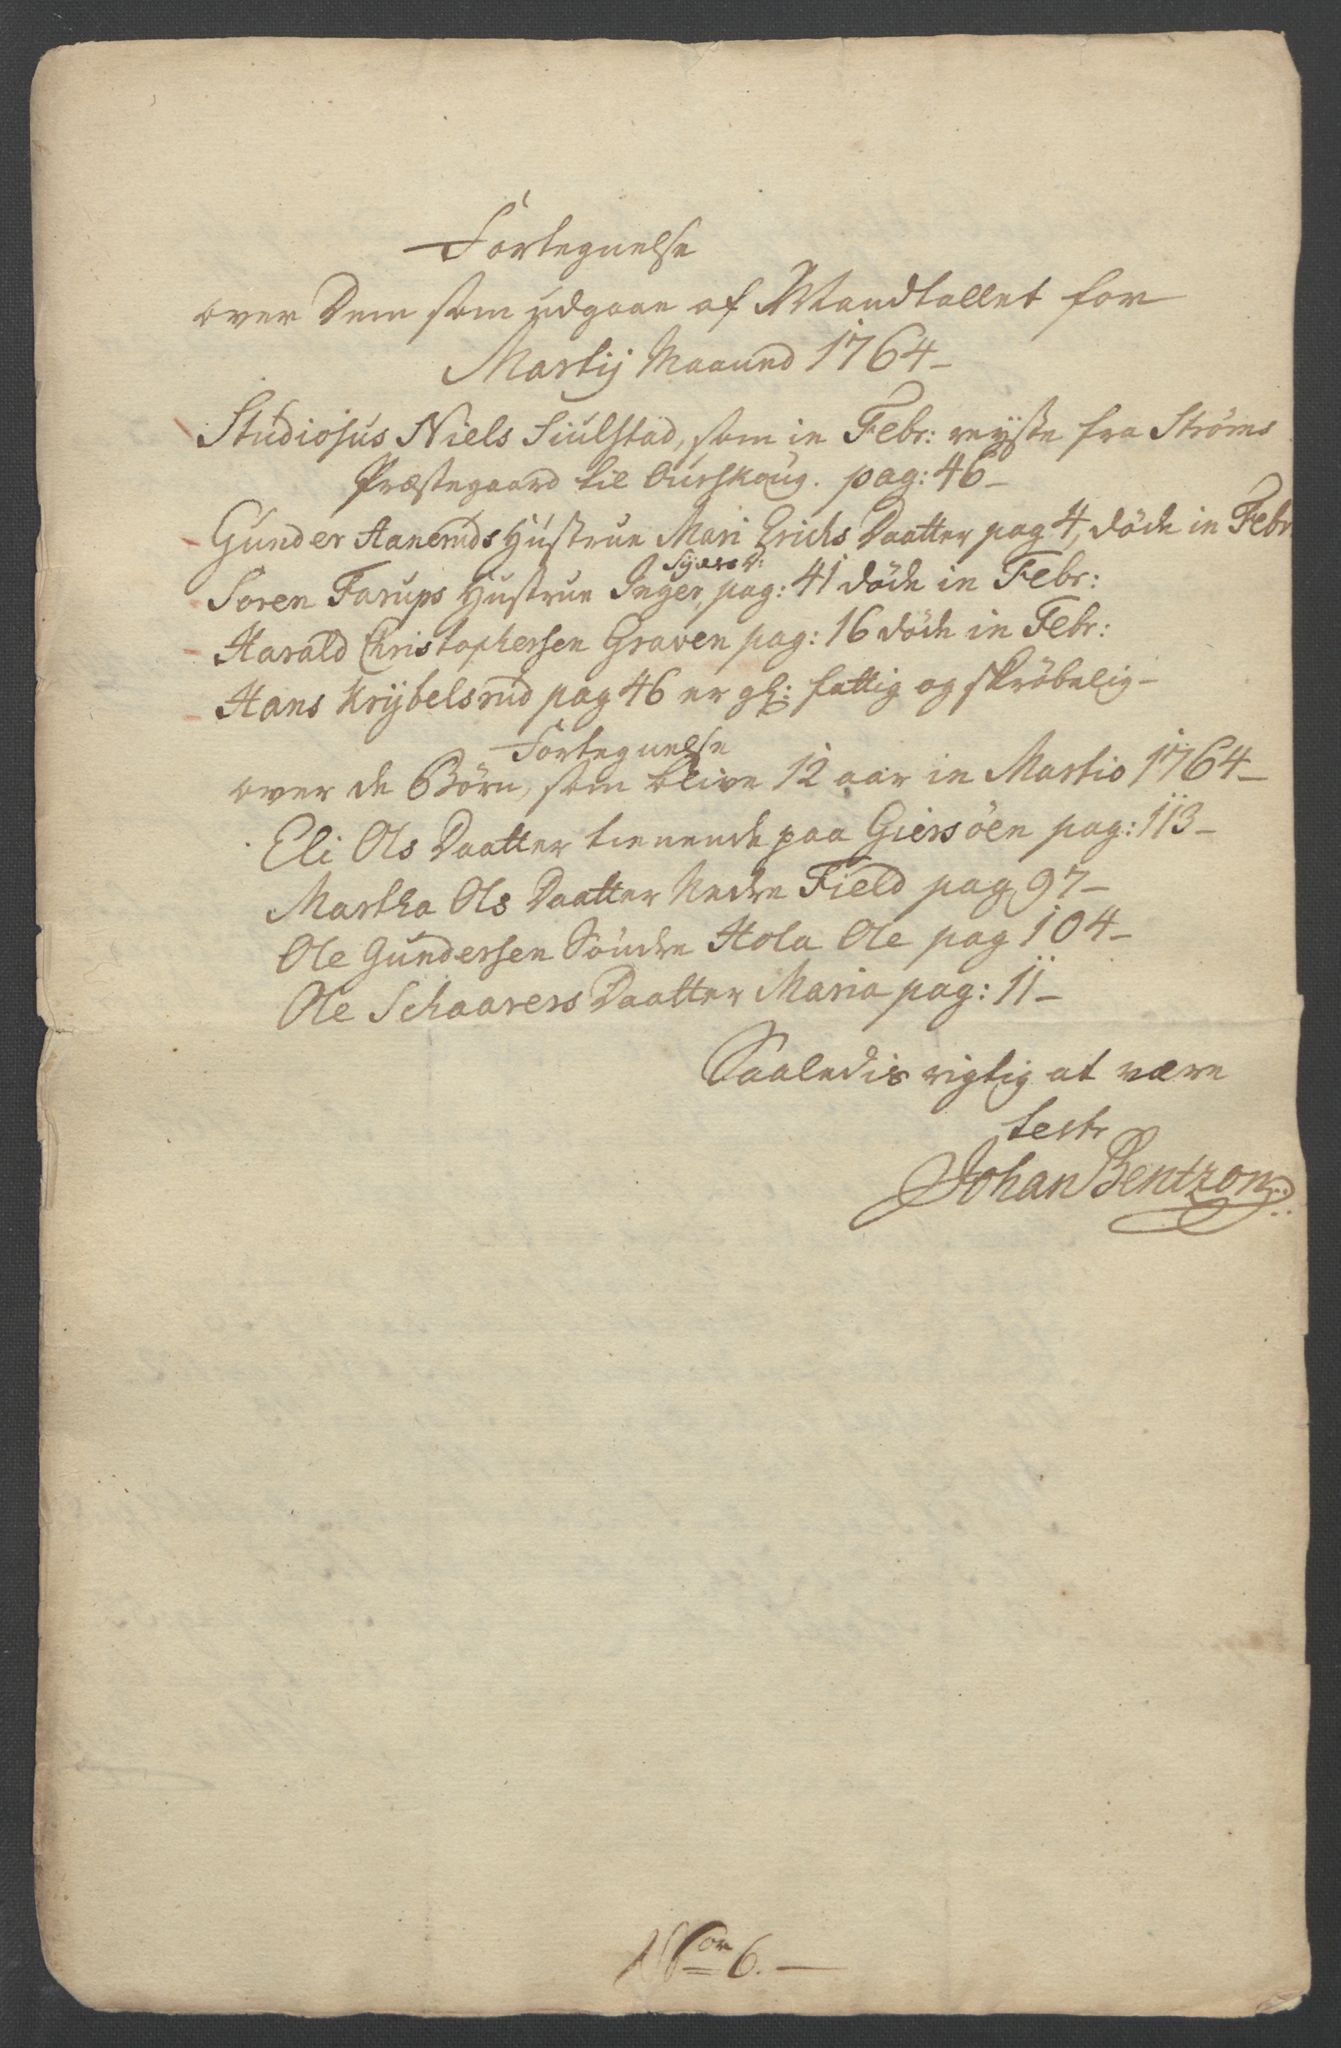 Fortegnelse
over Dem som udgaae af Mandtallet for
Martij Maaned 1764 -
Studiosus Niels Siulstad, som in Febr: reyste fra Ströms
Præstegaard til Ourskoug. pag: 46 -
Gunder Aaneruds Hustrue Mari Erichs Daatter pag 4, döde in Febr.
Soren Farups Hustrue Inger, pag: 41 döde in Febr:
Harald Christophersen Graven pag: 16 döde in Febr:
Hans Krybelsrud pag 46 er gl: fattig og skröbelig -
Fortegnelse
over de Börn, som blive 12 aar in Martio 1764 -
Eli Ols Daatter tienende paa Giersöen pag: 113 -
Martha Ols Daatter Nedre Field pag 97 -
Ole Gundersen Söndre Hola Ole pag 104 -
Ole Schaarers Daatter Maria pag: 11 -
Saaledis rigtig at være
test:
Johan Bentzon
No 6. -